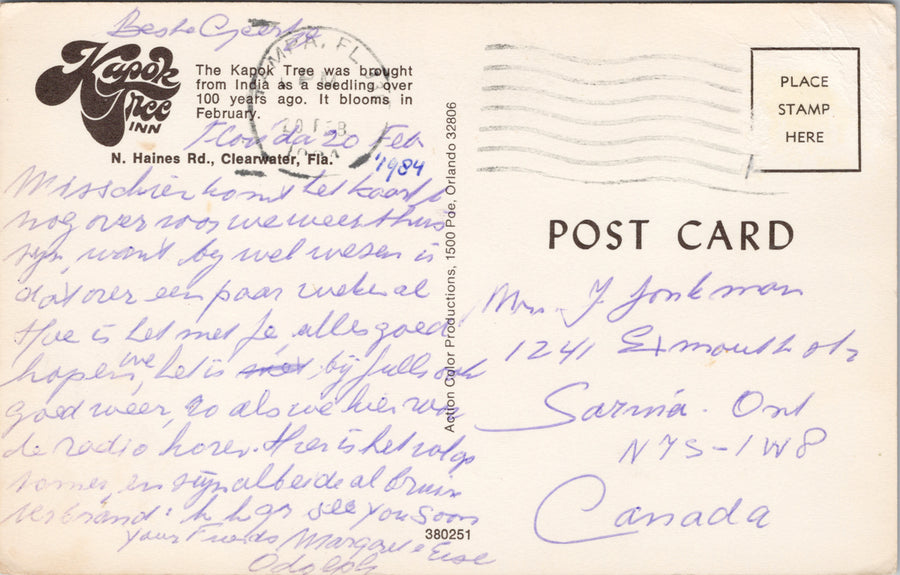 Beste Geertje
Kapok
Tree
INN
The Kapok Tree was brought
from India as a seedling over
100 years ago. It blooms in
February.
N. Haines Rd., Clearwater, Fla.
TAMPA, FL
PM
20 FEB
1984
Florida 20 Feb
1984
Misschien komt het kaartje
nog over voor we weer thuis
zijn, want by wel wesen is
dat over een paar weken al
Hoe is het met je, alles goed
hopen we, het is met bij jullie ook
goed weer, zo als we hier van
de radio horen. Hier is het volop
zomer, en zijn albeide al bruin
verbrand: h h gr see you soon
Your Friends Margaret e
Odolph
Action Color Productions, 1500 Pde, Orlando 32806
380251
PLACE
STAMP
HERE
POST CARD
Mrs. J Jonkman
1241 Exmouth str
Sarnia. Ont
N7S-1W8
Canada